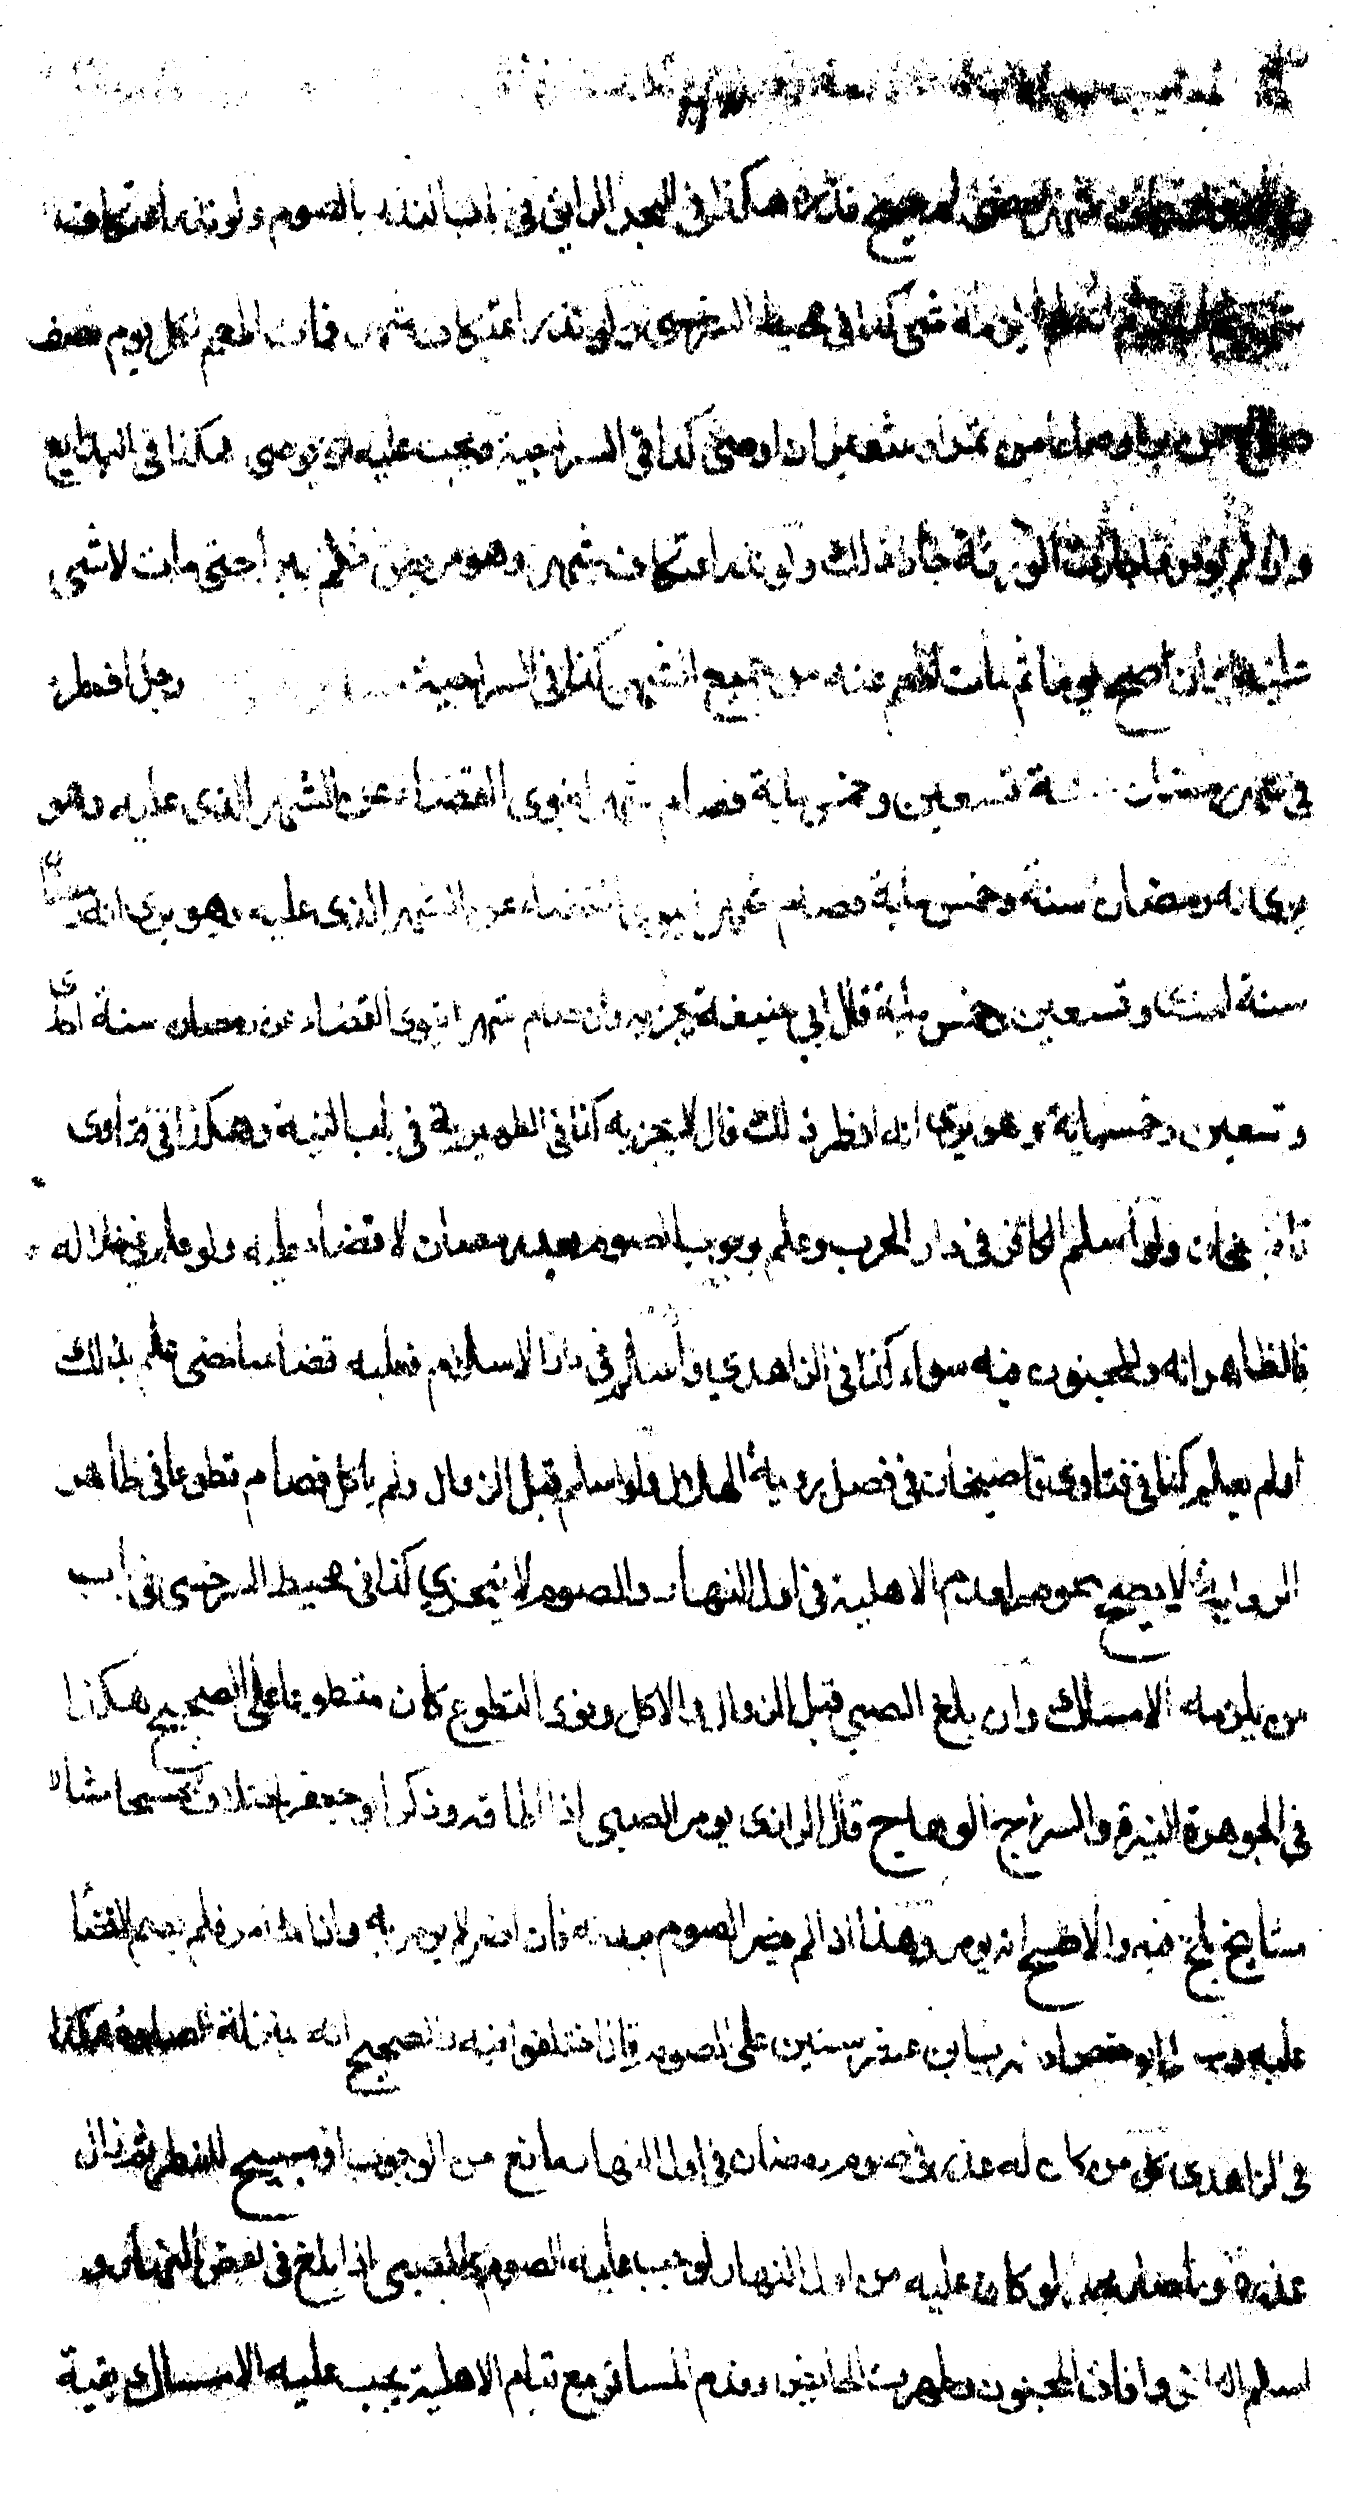 هكذا في البحر الرائق في باب النذر بالصوم ولو نذر اعتكاف
شي كذا في محيط السرخسي ولو نذر اعتكاف شهر فمات اطعم لكل يوم نصف
صاع من بر او صاعا من تمر او شعير ان اوصى كذا في السراجية ويجب عليه ان يوصى هكذا في البدايع
وان لم يوص واجازت الورثة جاز ذلك ولو نذر اعتكاف شهر وهو مريض فلم يبرأ حتى مات لا شي
عليه وان صح يوما ثم مات اطعم عنه من جميع الشهر كذا في السراجية رجل افطر
في شهر رمضان سنة تسعين وخمس ماية فصام شهرا ينوى القضاء عن الشهر الذى عليه وهو
يرى انه رمضان سنة وخمس ماية فصام شهرا ينوى القضاء عن الشهر الذى عليه وهو يرى انه
سنة وتسعين وخمس ماية قال ابي حنيفة يجزيه وان صام شهرا ينوى القضاء عن رمضان سنة احدى
وتسعين وخمسماية وهو يرى انه افطر ذلك قال لا يجزيه كذا في الظهيرية في باب النية وهكذا في فتاوى
قاضيخان ولو اسلم الكافر في دار الحرب وعلم وجوب الصوم بعد رمضان لا قضاء عليه ولو علم في خلاله
فالظاهر انه والمجنون فيه سواء كذا في الزاهدي واسلم في دار الاسلام فعليه قضا ما مضى علم بذلك
اولم يعلم كذا في فتاوى قاضيخان في فصل روية الهلال ولو اسلم قبل الزوال ولم ياكل فصام تطوعا في ظاهر
الرواية لا يصح صومه لعدم الاهلية في اول النهار والصوم لا يتجزي كذا في محيط السرخسى في باب
من يلزمه الامساك وان بلغ الصبي قبل الزوال والاكل ونوى التطوع كان متطوعا على الصحيح هكذا
في الجوهرة النيرة والسراج الوهاج قال الرازى يومر الصبى اذا اطاقه وذكر ابو جعفر اختلاف
مشايخ بلخ فيه والاصح انه يومر وهذا اذا لم يضر الصوم ببدنه فان اضر لم يومر به واذا امر فلم يصم لا قضا
عليه وسئل ابو حفص ايضرب ابن عشر سنين على الصوم قال اختلفوا فيه والصحيح انه بمنزلة الصلوة هكذا
في الزاهدى كل من كان له عذر في صوم رمضان في اول النهار مانع من الوجوب او مبيح للفطر ثم زال
عذره وصار بحال لو كان عليه من اول النهار لوجب عليه الصوم كالصبى اذا بلغ في بعض النهار و
اسلم الكافر وافاق المجنون وطهرت الحايض وقدم المسافر مع قيام الاهلية يجب عليه الامساك بقية